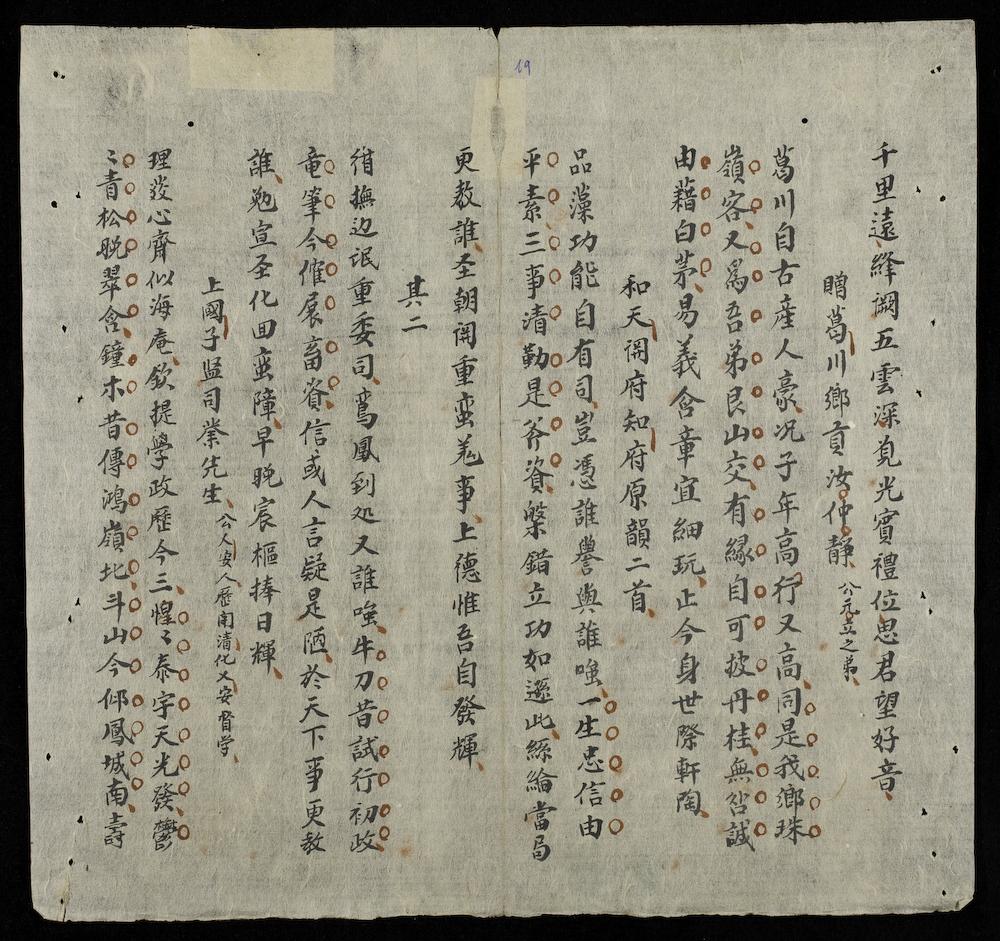 19
千里遠絳闕五雲深見光賓禮位思君望好音
贈葛川鄉貢汝仲靜 公元立之弟
葛川自古産人豪况子年高行又高同是我鄉珠
嶺客又爲吾弟艮山交有緣自可披丹桂無咎誠
由藉白茅易義含章宜細玩止今身世際軒陶
和天開府知府原韻二首
品藻功能自有司豈憑誰譽與誰嗤一生忠信由
平素三事清勤是斧資槃錯立功如遜此絲綸當局
更教誰圣朝関重蛮羌事上德惟吾自發輝
其二
绥撫边氓重委司鸞鳳到処又誰嗤牛刀昔試行初政
竜筆今催展畜資信或人言疑是陋於天下事更教
誰勉宣圣化囬蛮障早晚宸樞捧日輝
上國子监司業先生 公人安人歷南清化乂安督学
理發心齊似海庵欽提學政歷今三惺〻泰宇天光發鬱
〻青松晚翠含鐘木昔傳鴻嶺北斗山今仰鳳城南壽